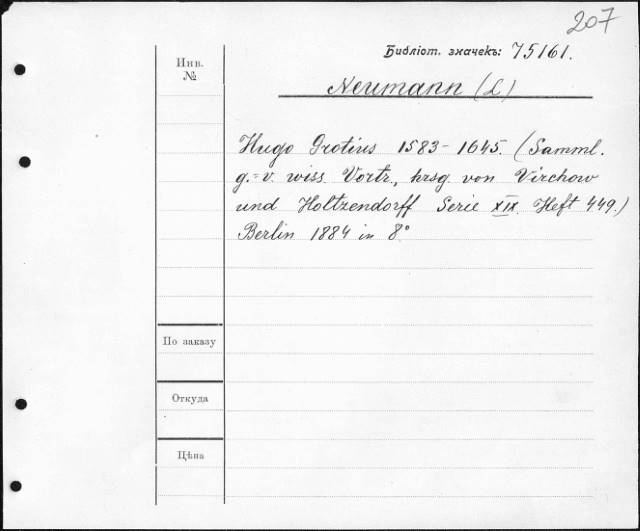 207
Библіот. значекъ: 75161.
Инв.
№
Neumann (L)
Hugo Grotius 1583-1645. (Samml.
g.=v. wiss. Vortr., hrsg. von Virchow
und Holtzendorff Serie XIX. Heft 449.)
Berlin 1884 in 8°
По заказу
Откуда
Цѣна